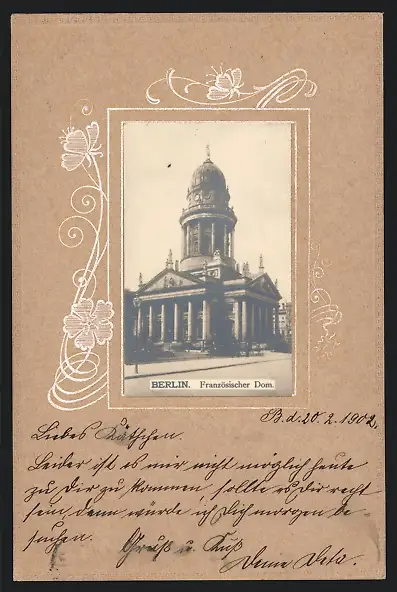 BERLIN. Französischer Dom.
B. d. 20. 2. 1902.
Liebes Käthchen.
Leider ist es mir nicht möglich heute
zu Dir zu kommen, sollte es Dir recht
sein, dann würde ich Dich morgen be-
suchen. Gruß u. Kuß
Deine